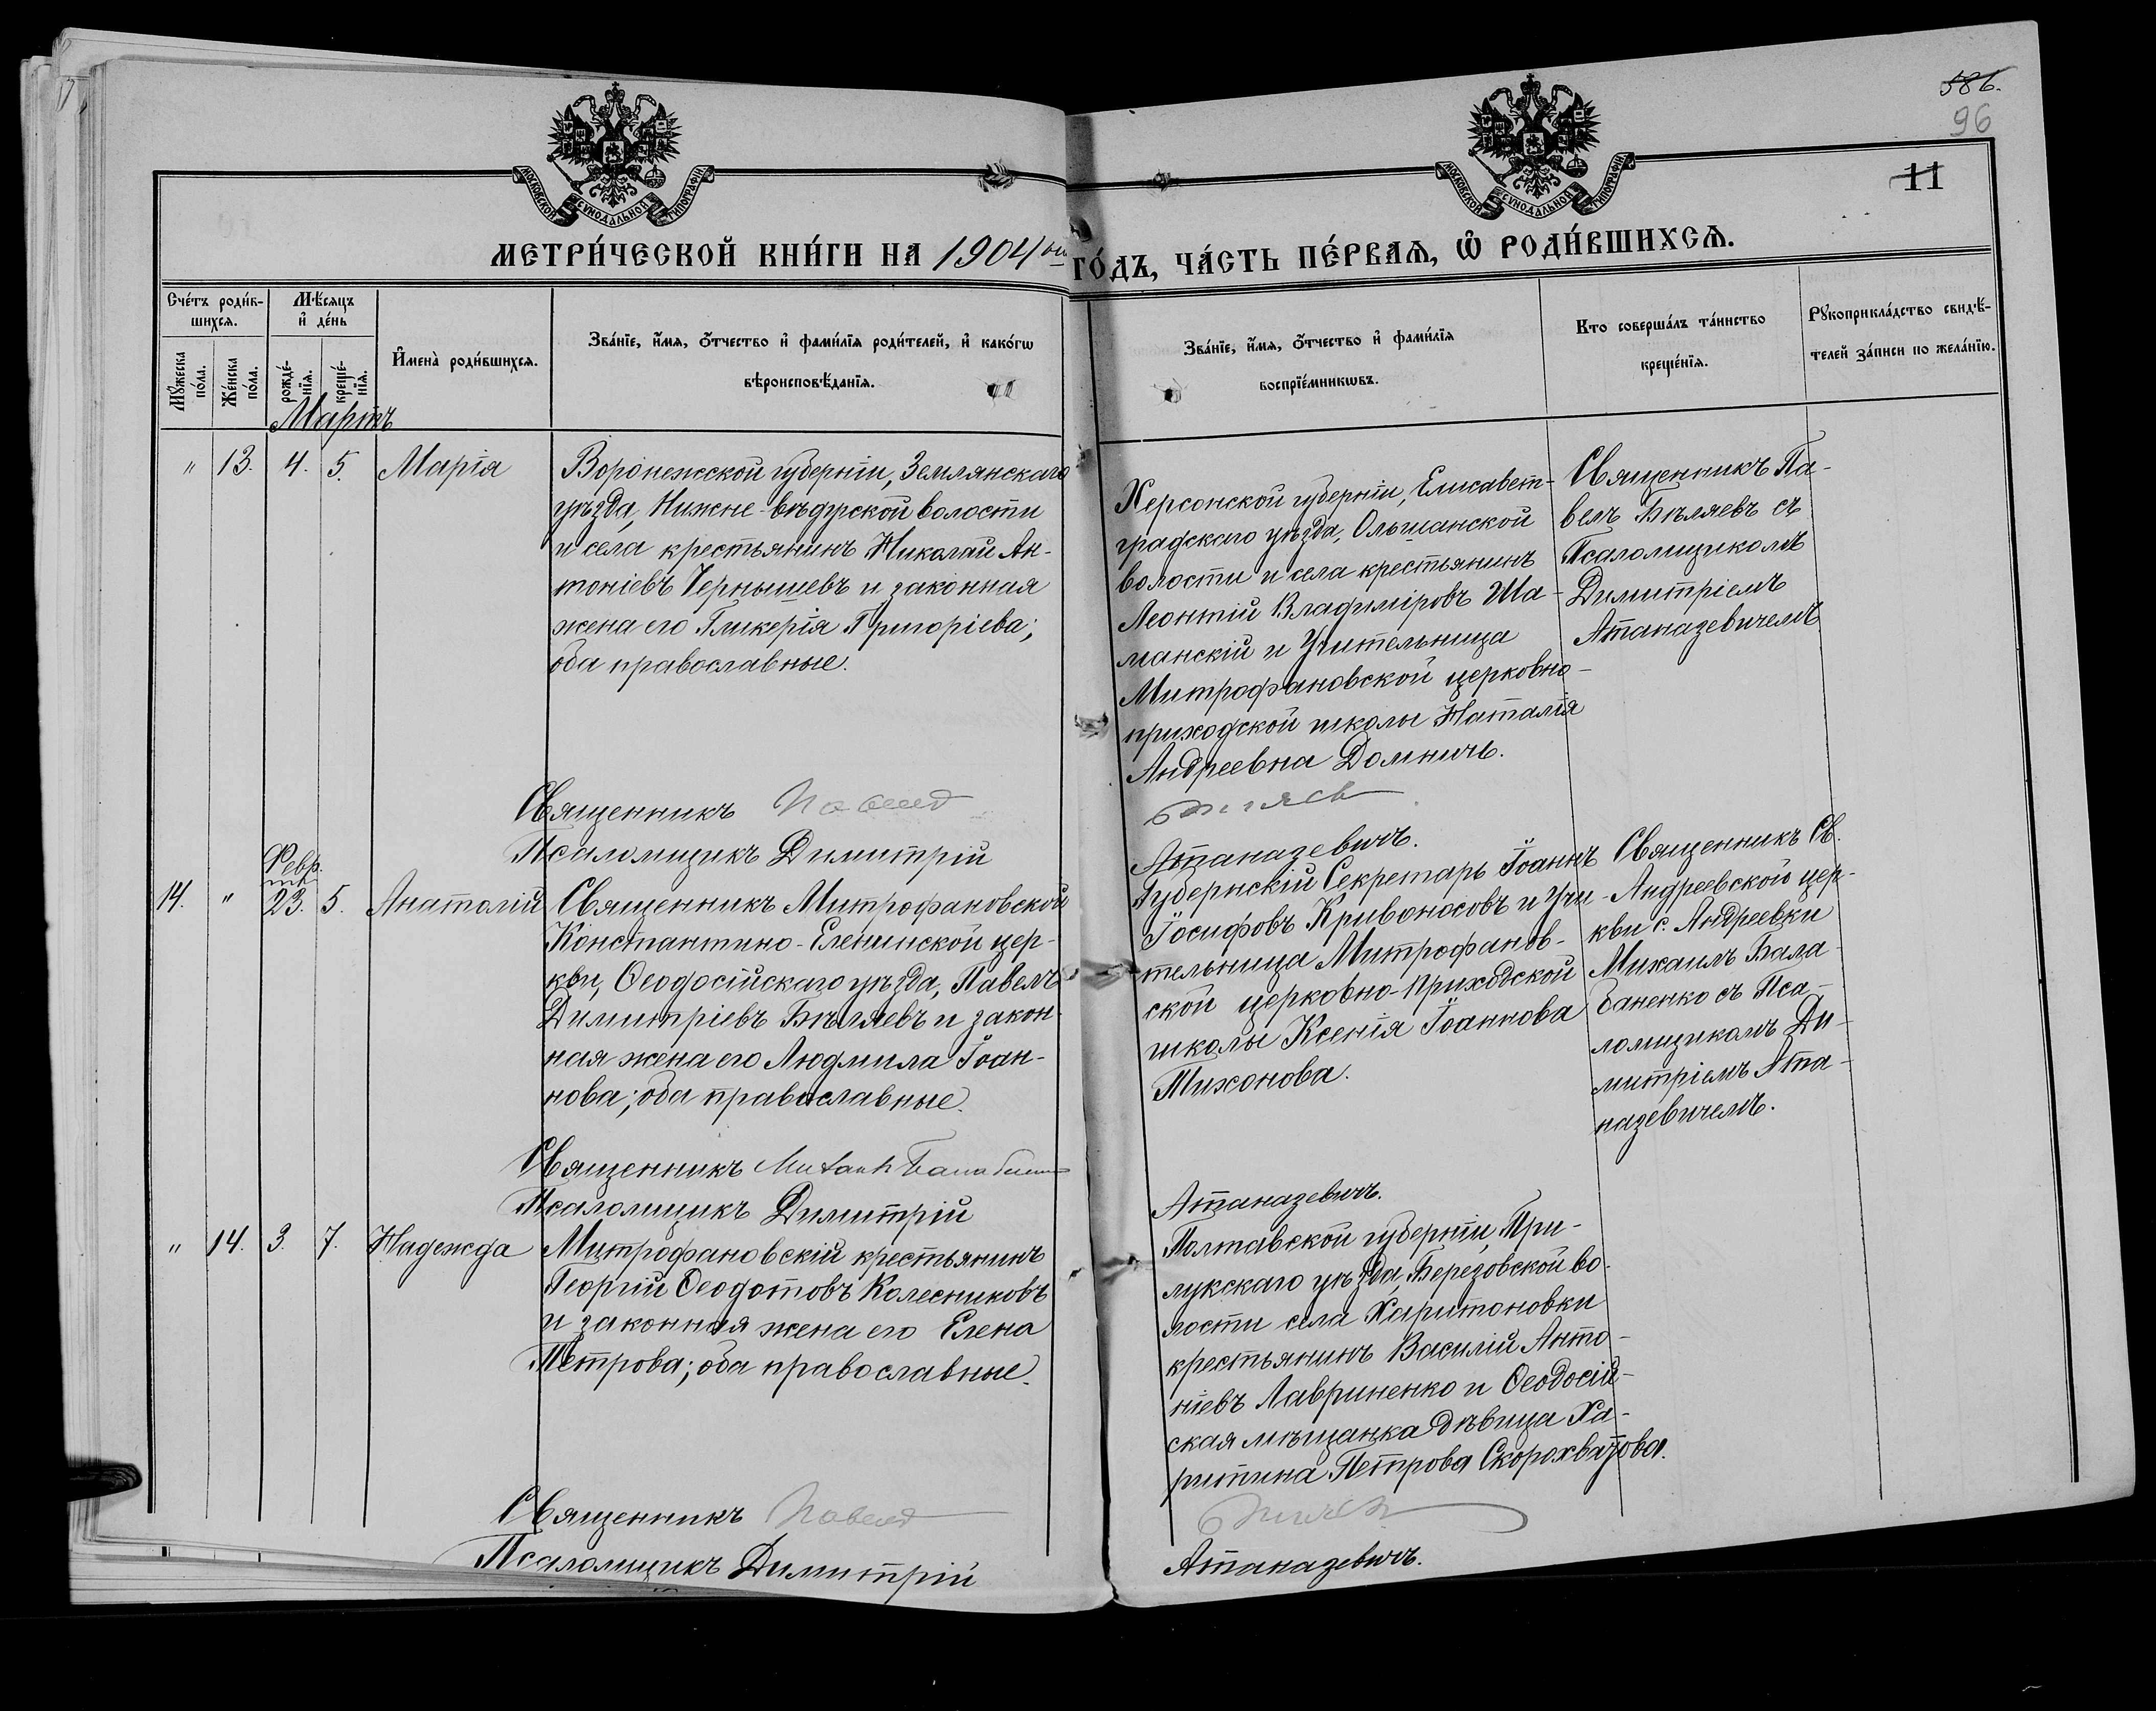 586.
96
11
МОСКОВСКОЙ СѴНОДАЛЬНОЙ ТИПОГРАФІИ
МОСКОВСКОЙ СѴНОДАЛЬНОЙ ТИПОГРАФІИ
МЕТРИ́ЧЕСКОЙ КНИ́ГИ НА 1904ый ГО́ДЪ, ЧА́СТЬ ПЕ́РВАѦ, Ѡ҆ РОДИ́ВШИХСѦ.
Сче́тъ роди́в-
шихсѧ.
Мꙋ́жеска
по́ла.
Же́нска
по́ла.
Мѣ́сѧцъ
и҆ де́нь
рожде́-
нїѧ.
креще́-
нїѧ.
И҆мена̀ роди́вшихсѧ.
Зва́нїе, и҆́мѧ, ѻ҆́тчество и҆ фами́лїѧ роди́телей, и҆ како́гѡ
вѣроисповѣ́данїѧ.
Зва́нїе, и҆́мѧ, ѻ҆́тчество и҆ фами́лїѧ
воспрїе́мникѡвъ.
Кто соверша́лъ та́инство
креще́нїѧ.
Рꙋкоприкла́дство свидѣ́-
телей за́писи по жела́нїю.
Мартъ
" 13. 4. 5. Марія
Воронежской губерніи, Землянскаго
уѣзда, Нижне-вѣдугской волости
и села крестьянинъ Николай Ан-
тоніевъ Чернышевъ и законная
жена его Гликерія Григоріева;
оба православные.
Херсонской губерніи, Елисавет-
градскаго уѣзда, Ольшанской
волости и села крестьянинъ
Леонтій Владиміровъ Ша-
манскій и Учительница
Митрофановской церковно-
приходской школы Наталія
Андреевна Домничъ.
Священникъ Па-
велъ Бѣляевъ съ
Псаломщикомъ
Димитріемъ
Атаназевичемъ
Священникъ Павелъ Бѣляевъ
Псаломщикъ Димитрій Атаназевичъ.
Февр.
14. " 23. 5. Анатолій
Священникъ Митрофановской
Константино-Еленинской цер-
кви, Ѳеодосійскаго уѣзда, Павелъ
Димитріевъ Бѣляевъ и закон-
ная жена его Людмила Іоан-
нова; оба православные.
Губернскій Секретарь Іоаннъ
Іосифовъ Кривоносовъ и Учи-
тельница Митрофанов-
ской церковно-приходской
школы Ксенія Іоаннова
Тихонова.
Священникъ Св.
Андреевской цер-
кви с. Андреевки
Михаилъ Бала-
баненко съ Пса-
ломщикомъ Ди-
митріемъ Ата-
назевичемъ.
Священникъ Михаилъ Балабаненко
Псаломщикъ Димитрій Атаназевичъ.
" 14. 3. 7. Надежда
Митрофановскій крестьянинъ
Георгій Ѳеодотовъ Колесниковъ
и законная жена его Елена
Петрова; оба православные.
Полтавской губерніи, При-
лукскаго уѣзда, Березовской во-
лости села Харитоновки
крестьянинъ Василій Анто-
ніевъ Лавриненко и Ѳеодосій-
ская мѣщанка дѣвица Ха-
ритина Петрова Скорохватова.
Священникъ Павелъ Бѣляевъ
Псаломщикъ Димитрій Атаназевичъ.